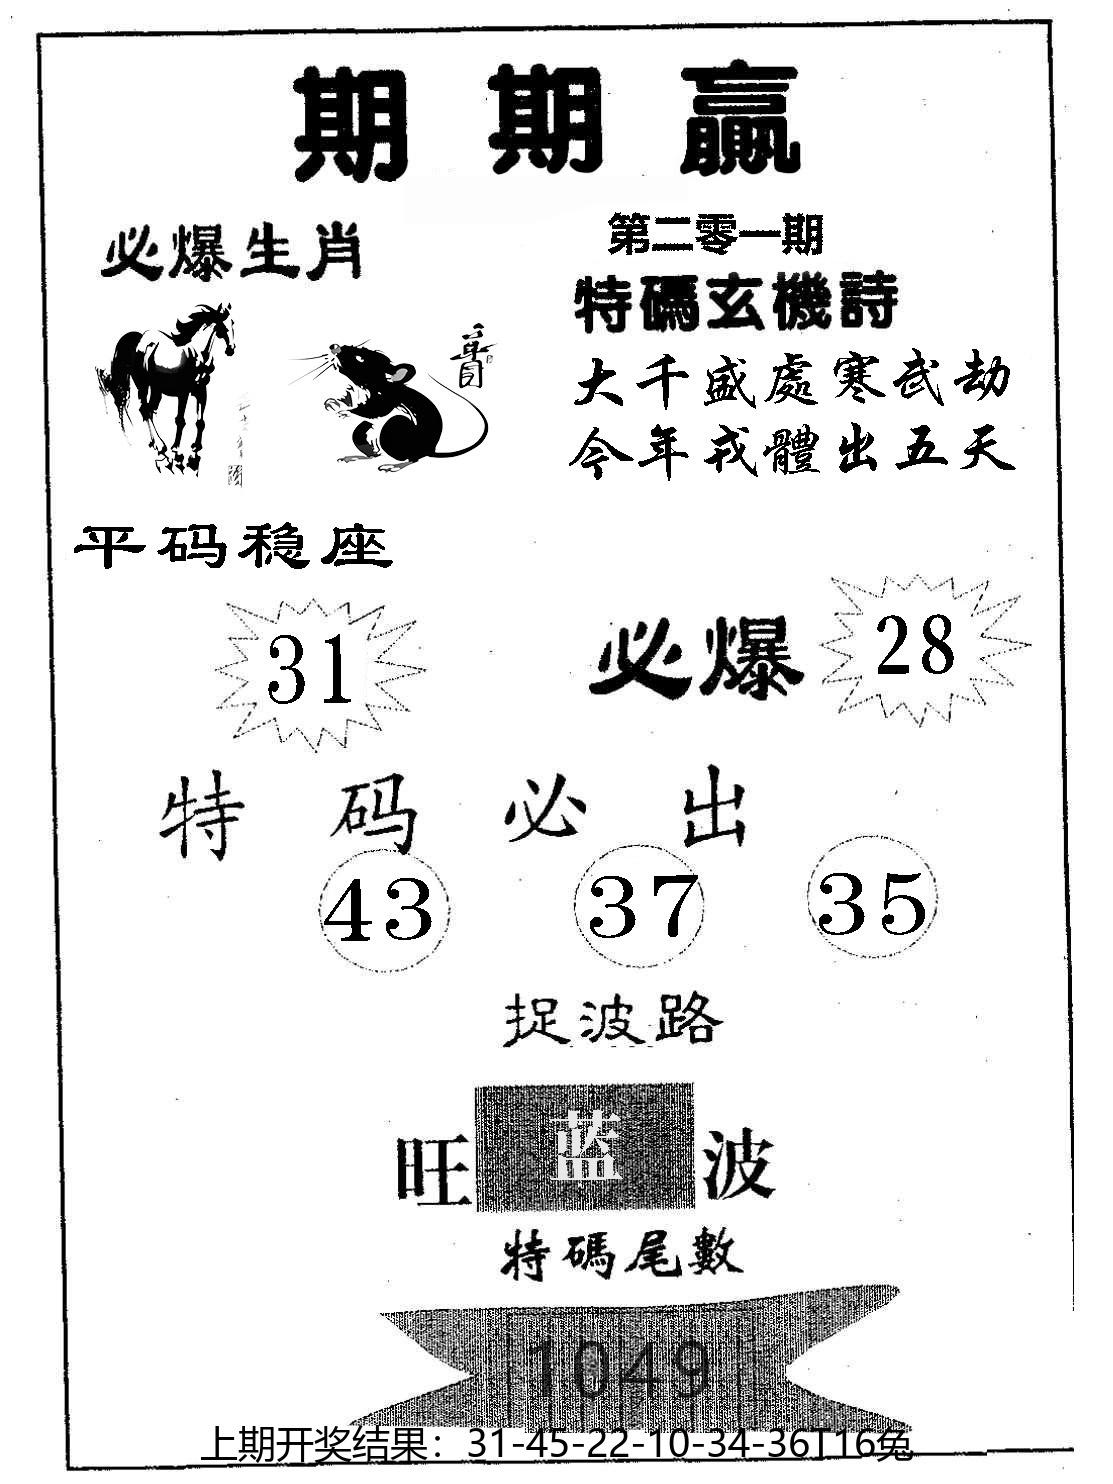 期期贏
必爆生肖
第二零一期
特碼玄機詩
大千盛處寒武劫
今年戎體出五天
平码稳座
31
必爆
28
特码必出
43 37 35
捉波路
旺蓝波
特碼尾數
1049
上期开奖结果：31-45-22-10-34-36T16兔